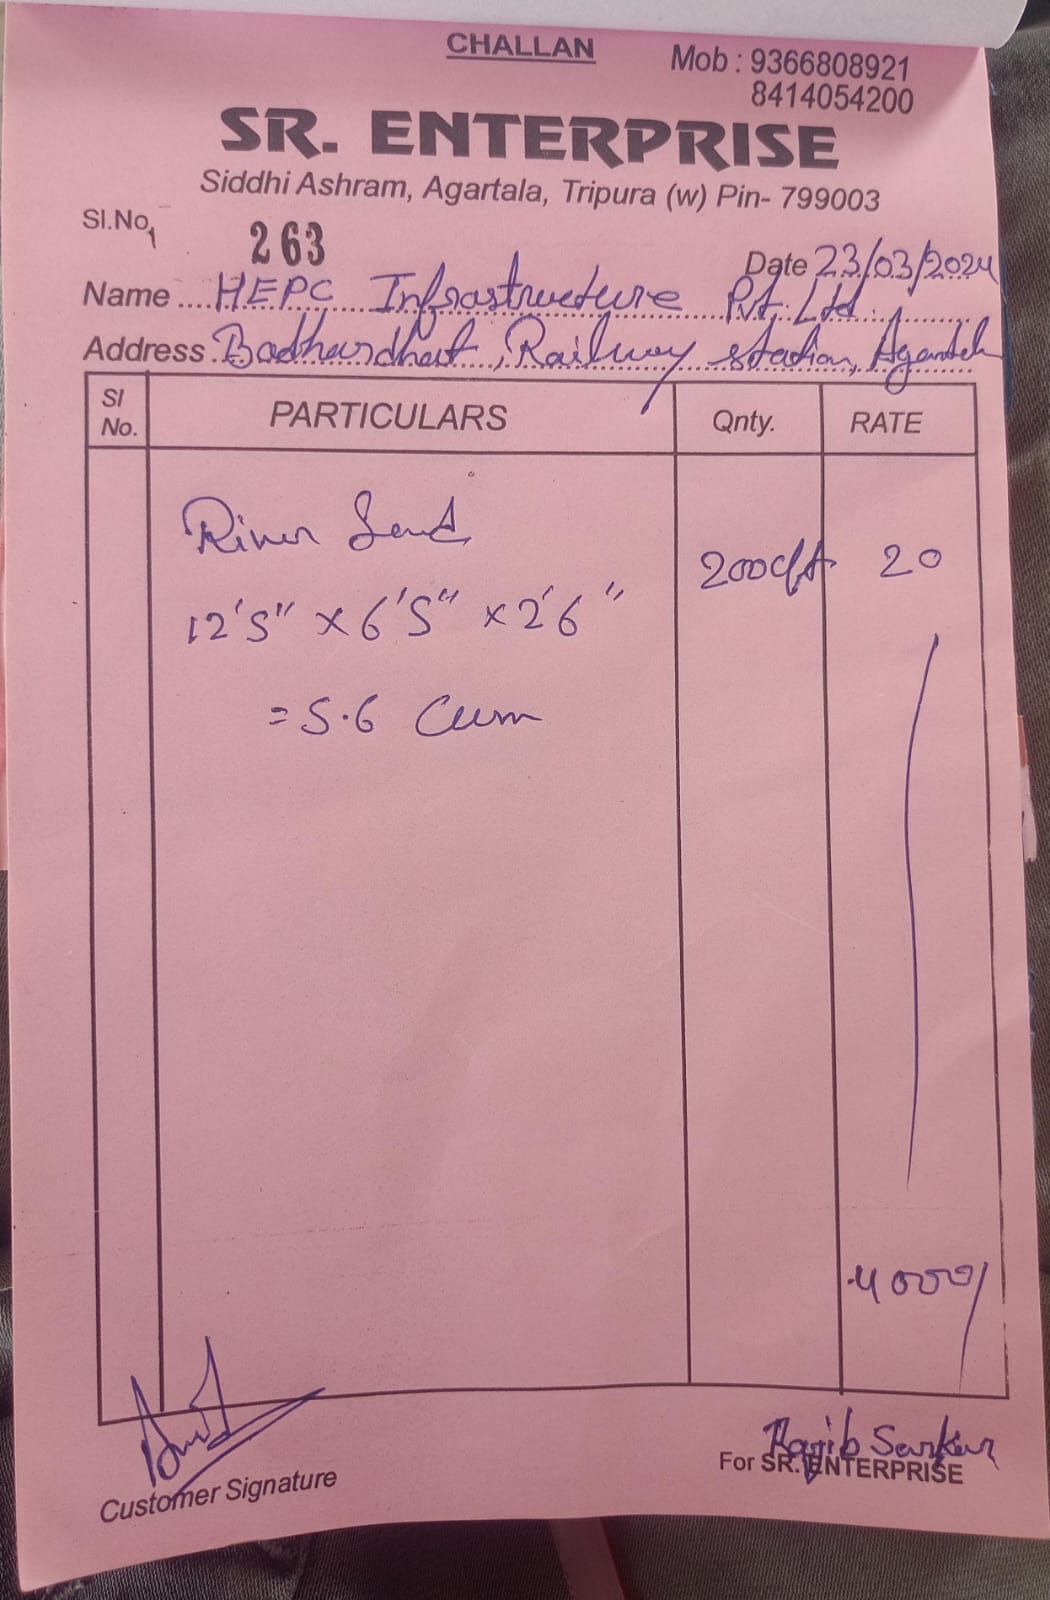 CHALLAN
Mob : 9366808921
8414054200
SR. ENTERPRISE
Siddhi Ashram, Agartala, Tripura (w) Pin- 799003
Sl.No. 263
Date 23/03/2024
Name HEPC Infrastructure Pvt. Ltd.
Address Badhardhat, Railway station,
Sl No. PARTICULARS Qnty. RATE
River Sand 200cft 20
12'5" x 6'5" x 2'6"
= 5.6 Cum
4000/
Rajib Sarkar
Customer Signature For SR. ENTERPRISE